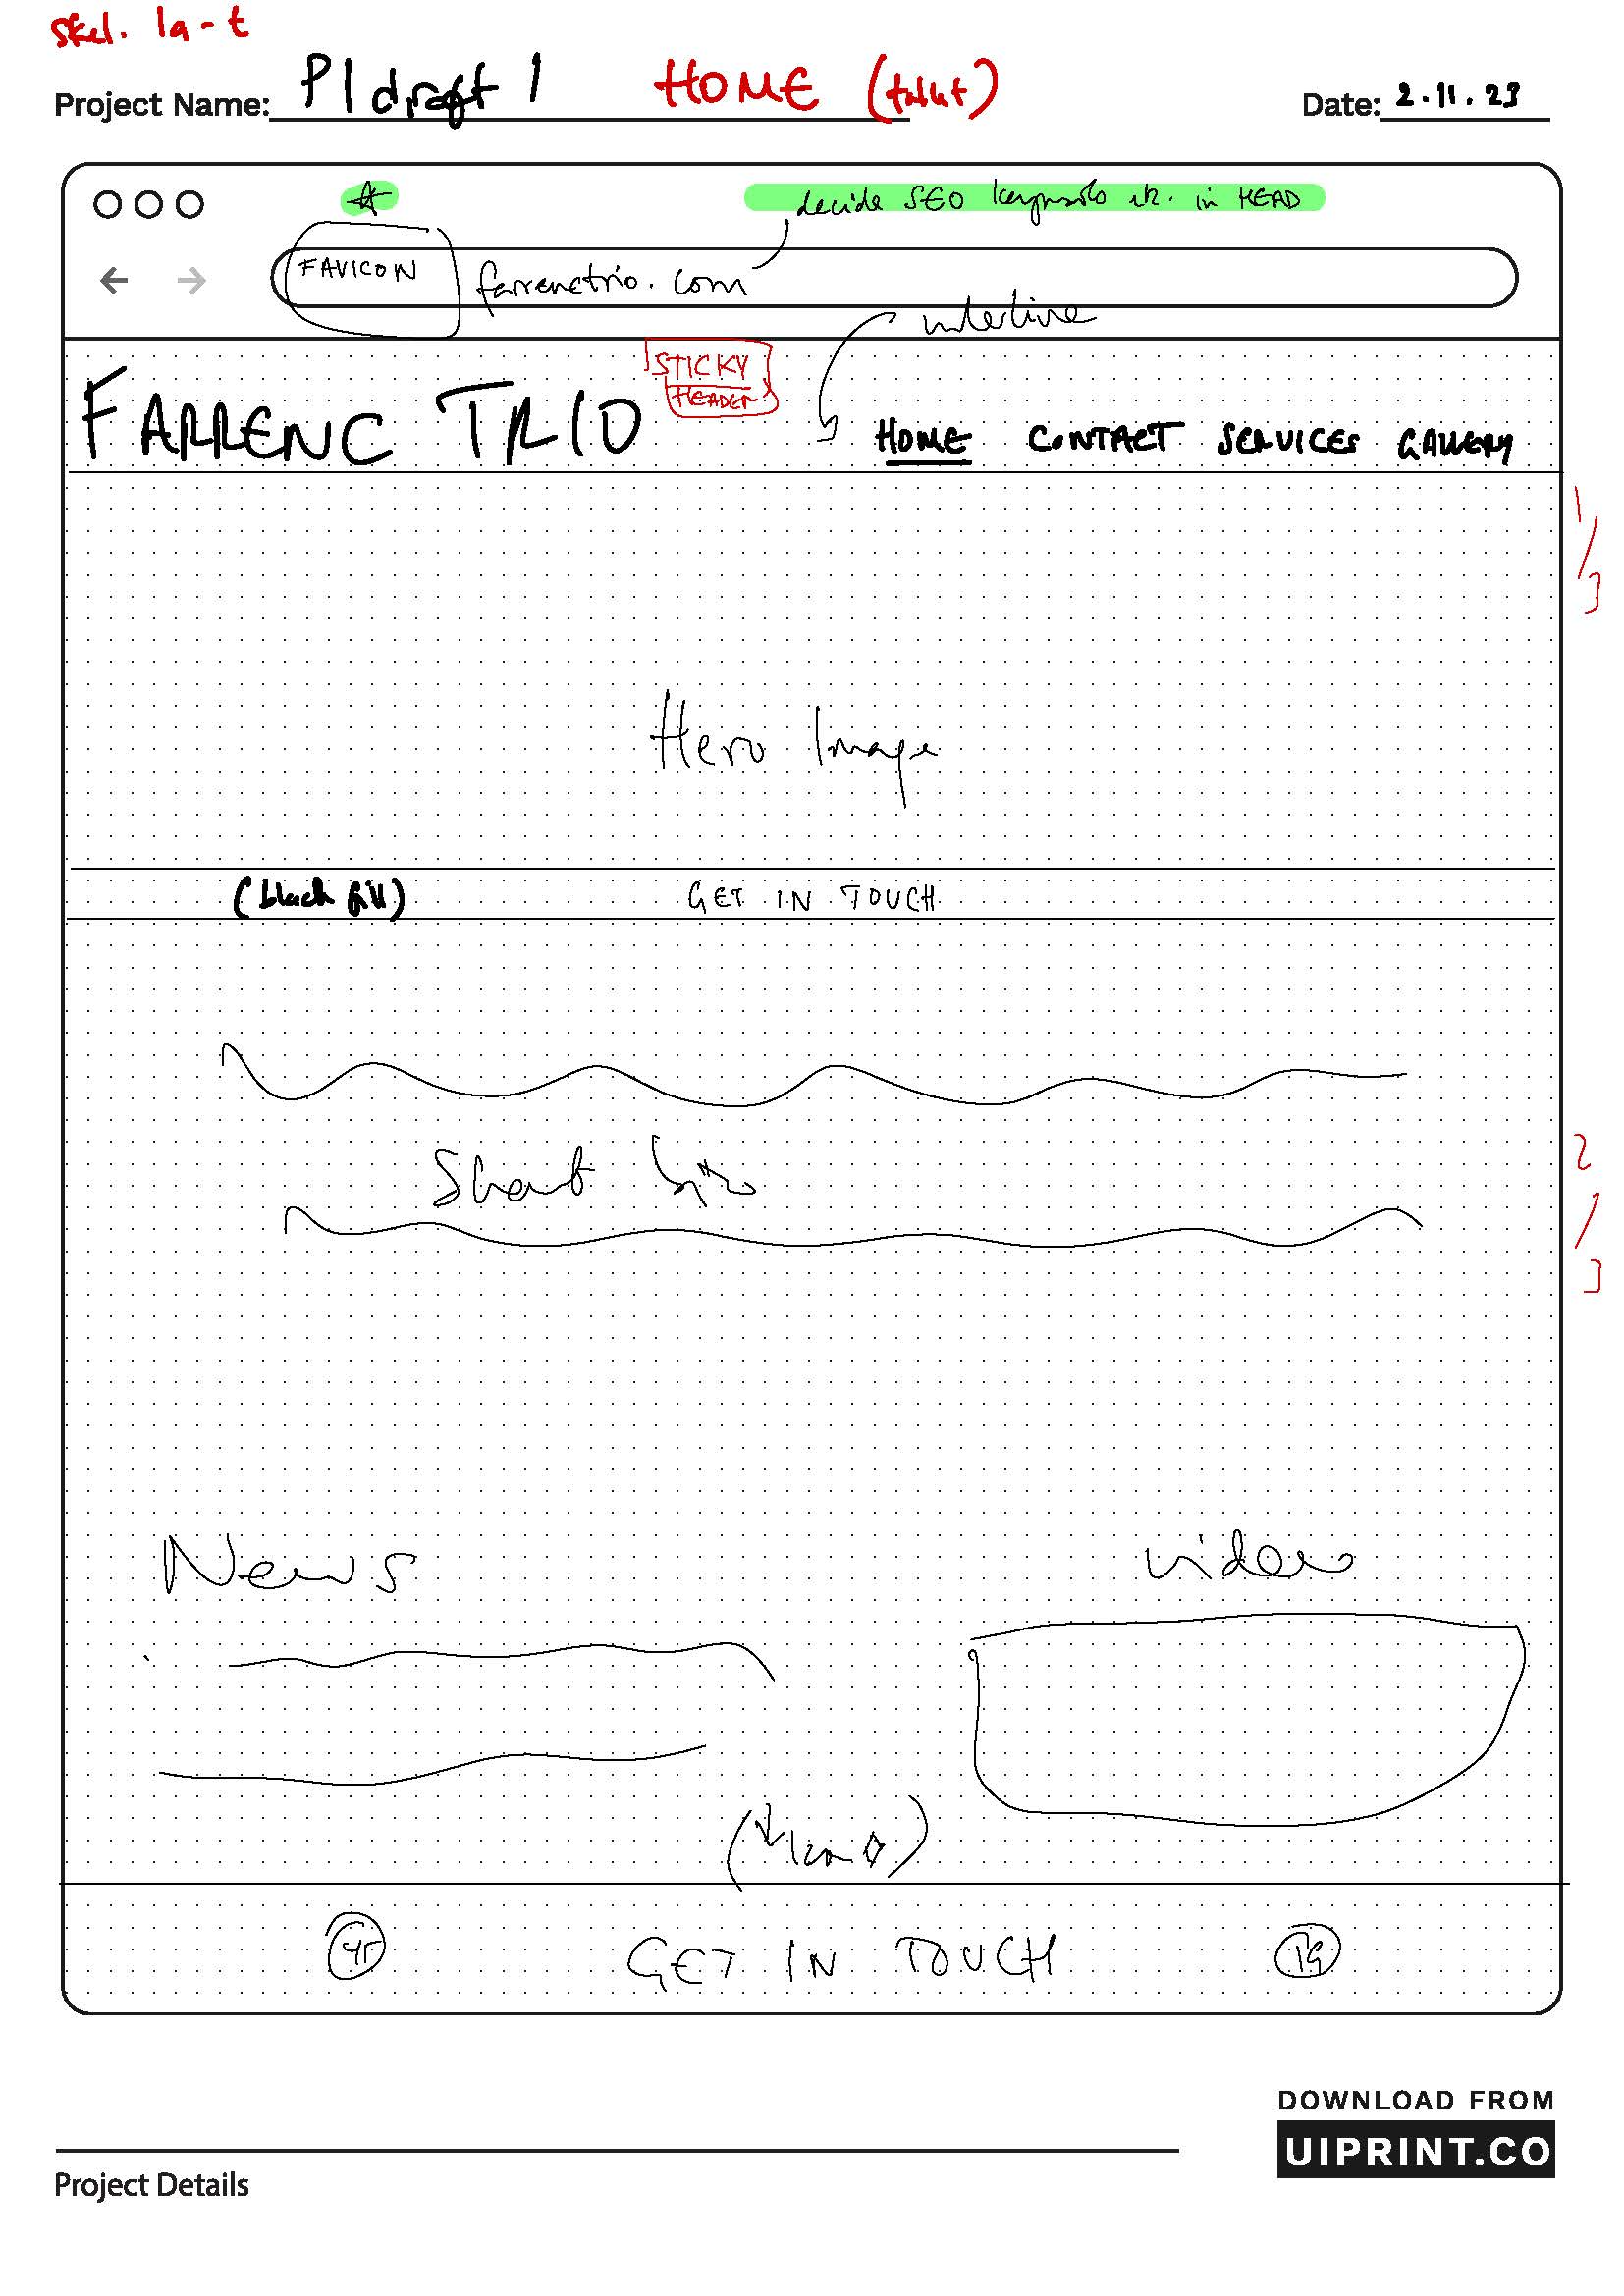 Skel. 1a-t
Project Name: P1 draft 1 HOME
Date: 2.11.23
decide SEO in HEAD
FAVICON farrenctrio.com
underline
STICKY
HEADER
FARRENC TRIO
HOME CONTACT SERVICES GALLERY
1/3
Hero Image
(black fill) GET IN TOUCH
Short bio
2/3
News video
YT GET IN TOUCH IG
DOWNLOAD FROM
UIPRINT.CO
Project Details